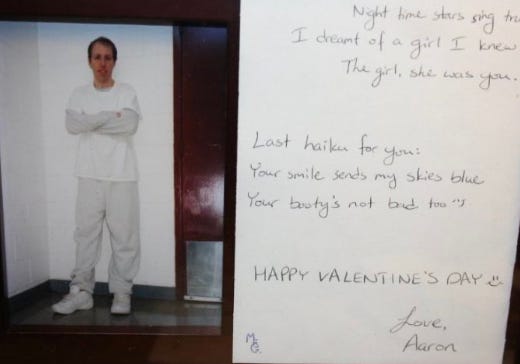 Night time stars sing
I dreamt of a girl I knew
The girl, she was you.
Last haiku for you:
Your smile sends my skies blue
Your booty's not bad too
HAPPY VALENTINE'S DAY
Love,
Aaron